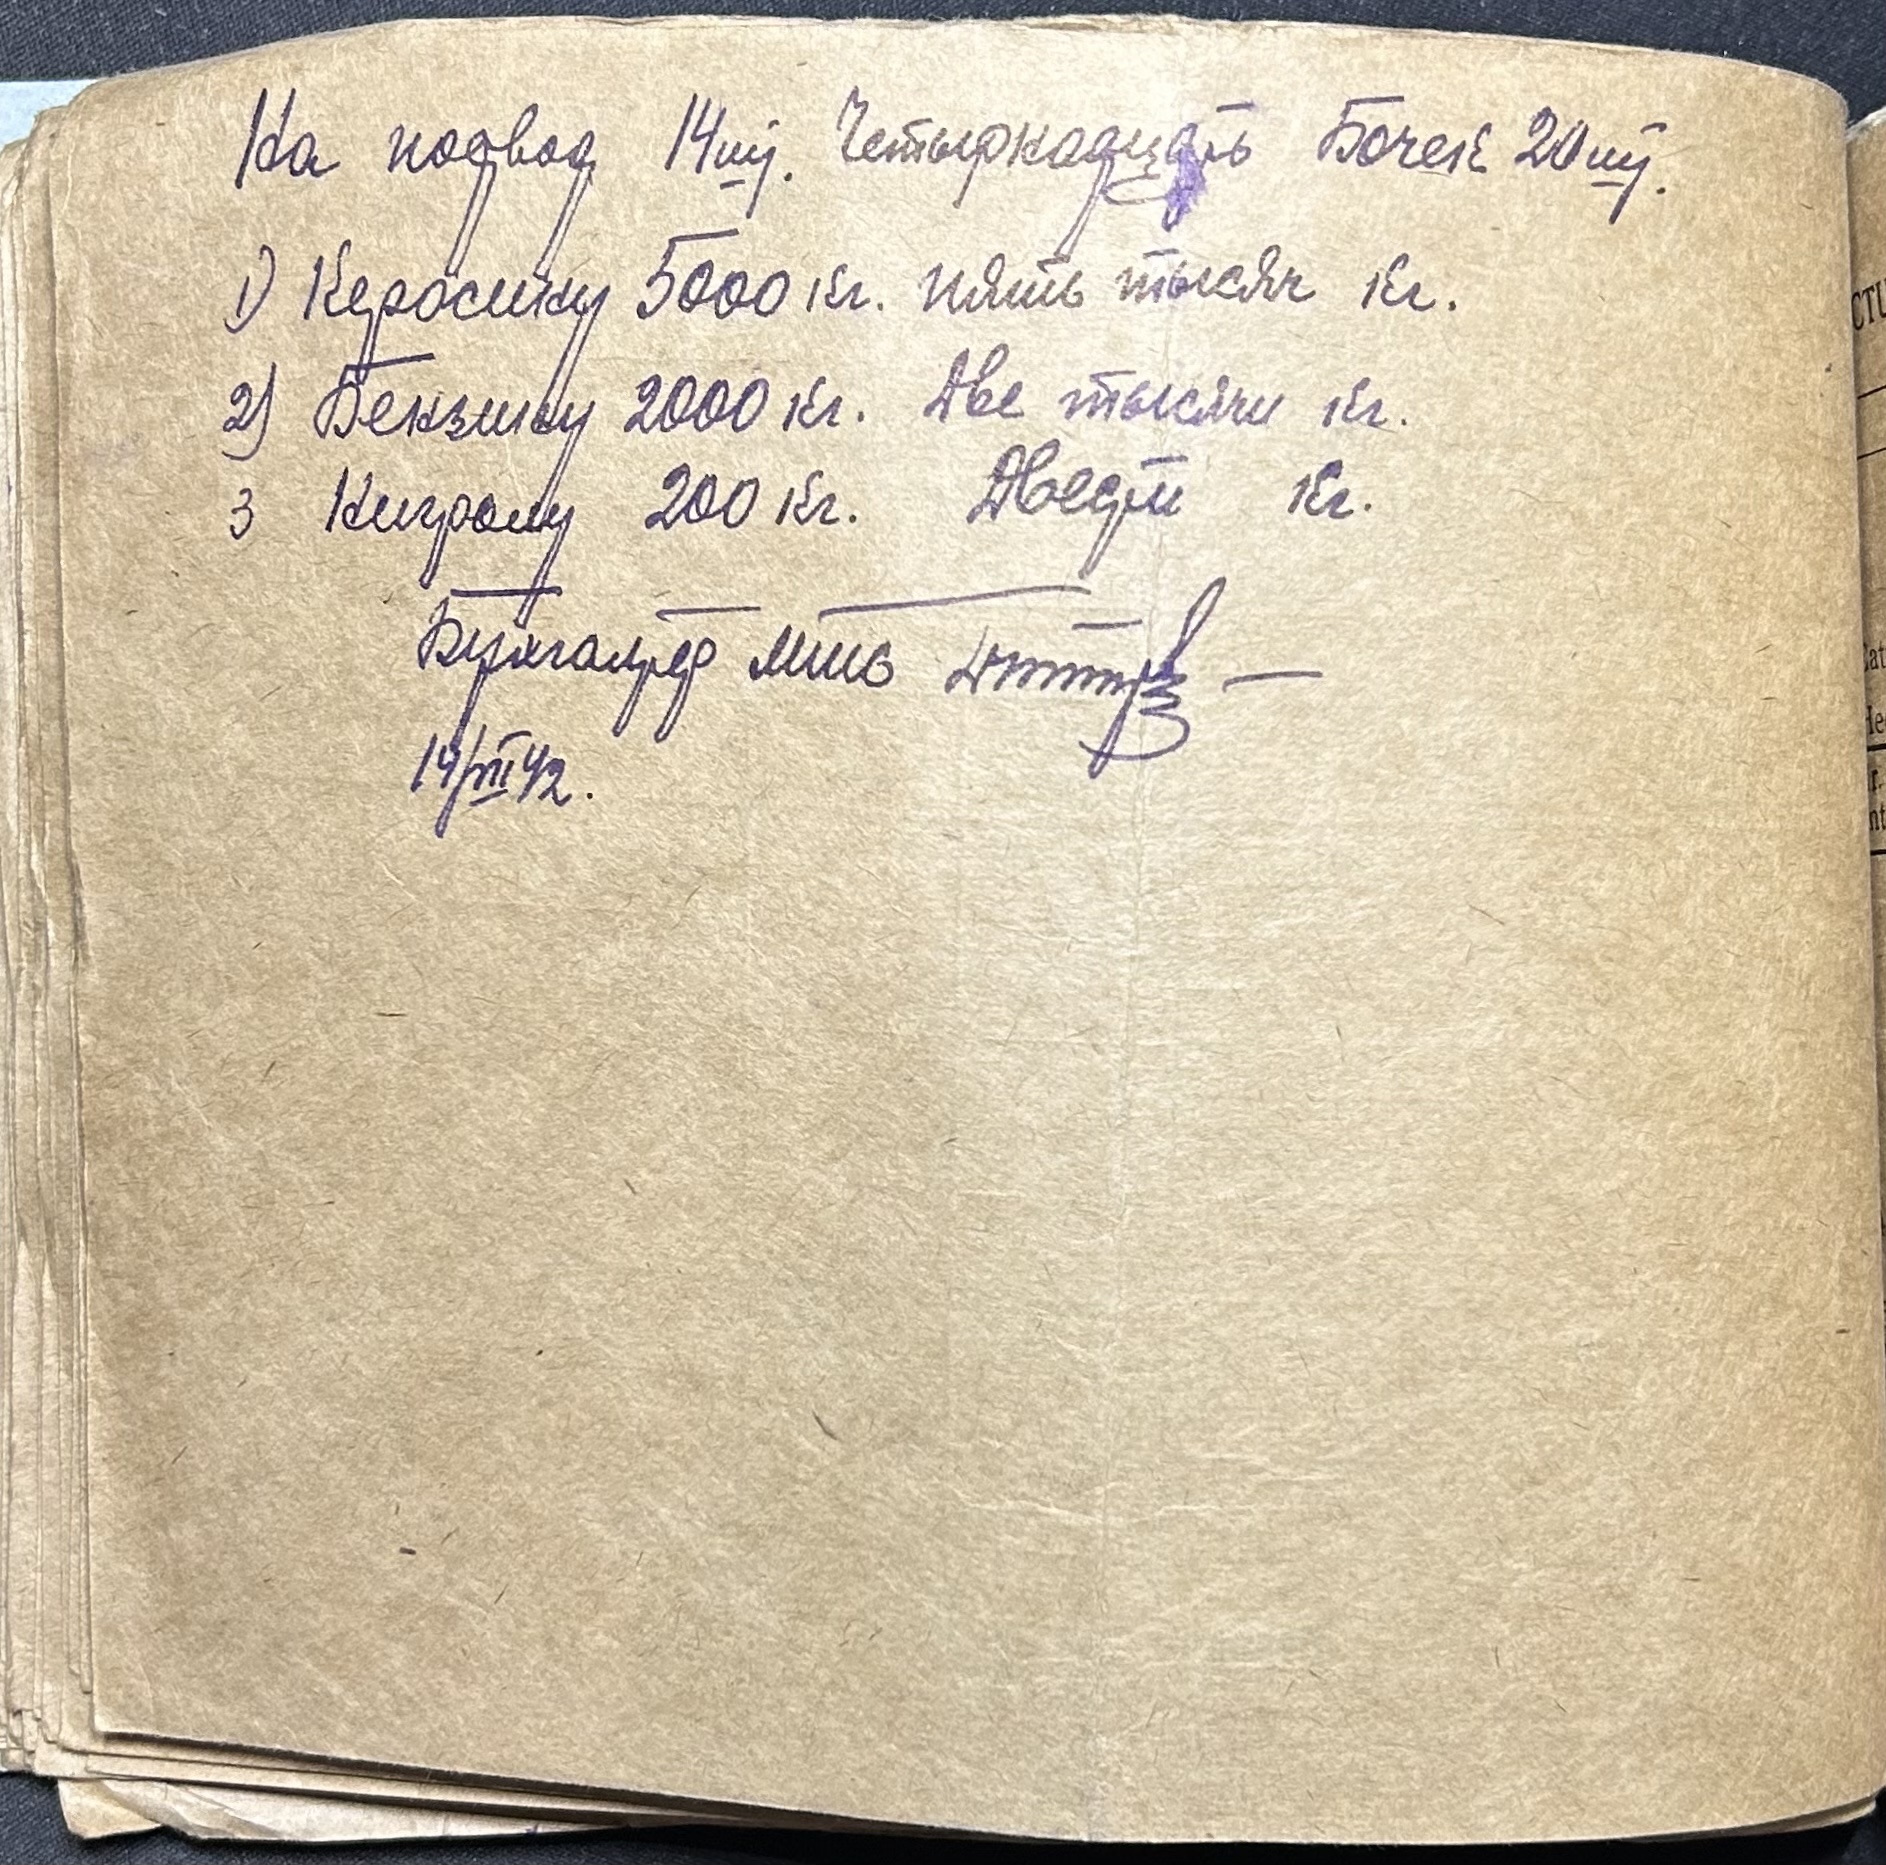 На подвод 14 шт. Четырнадцать Бочек 20 шт.
1) Керосину 5000 кг. пять тысяч кг.
2) Бензину 2000 кг. Две тысячи кг.
3 Нигролу 200 кг. Двести кг.
Бухгалтер МТС
14/III 42.